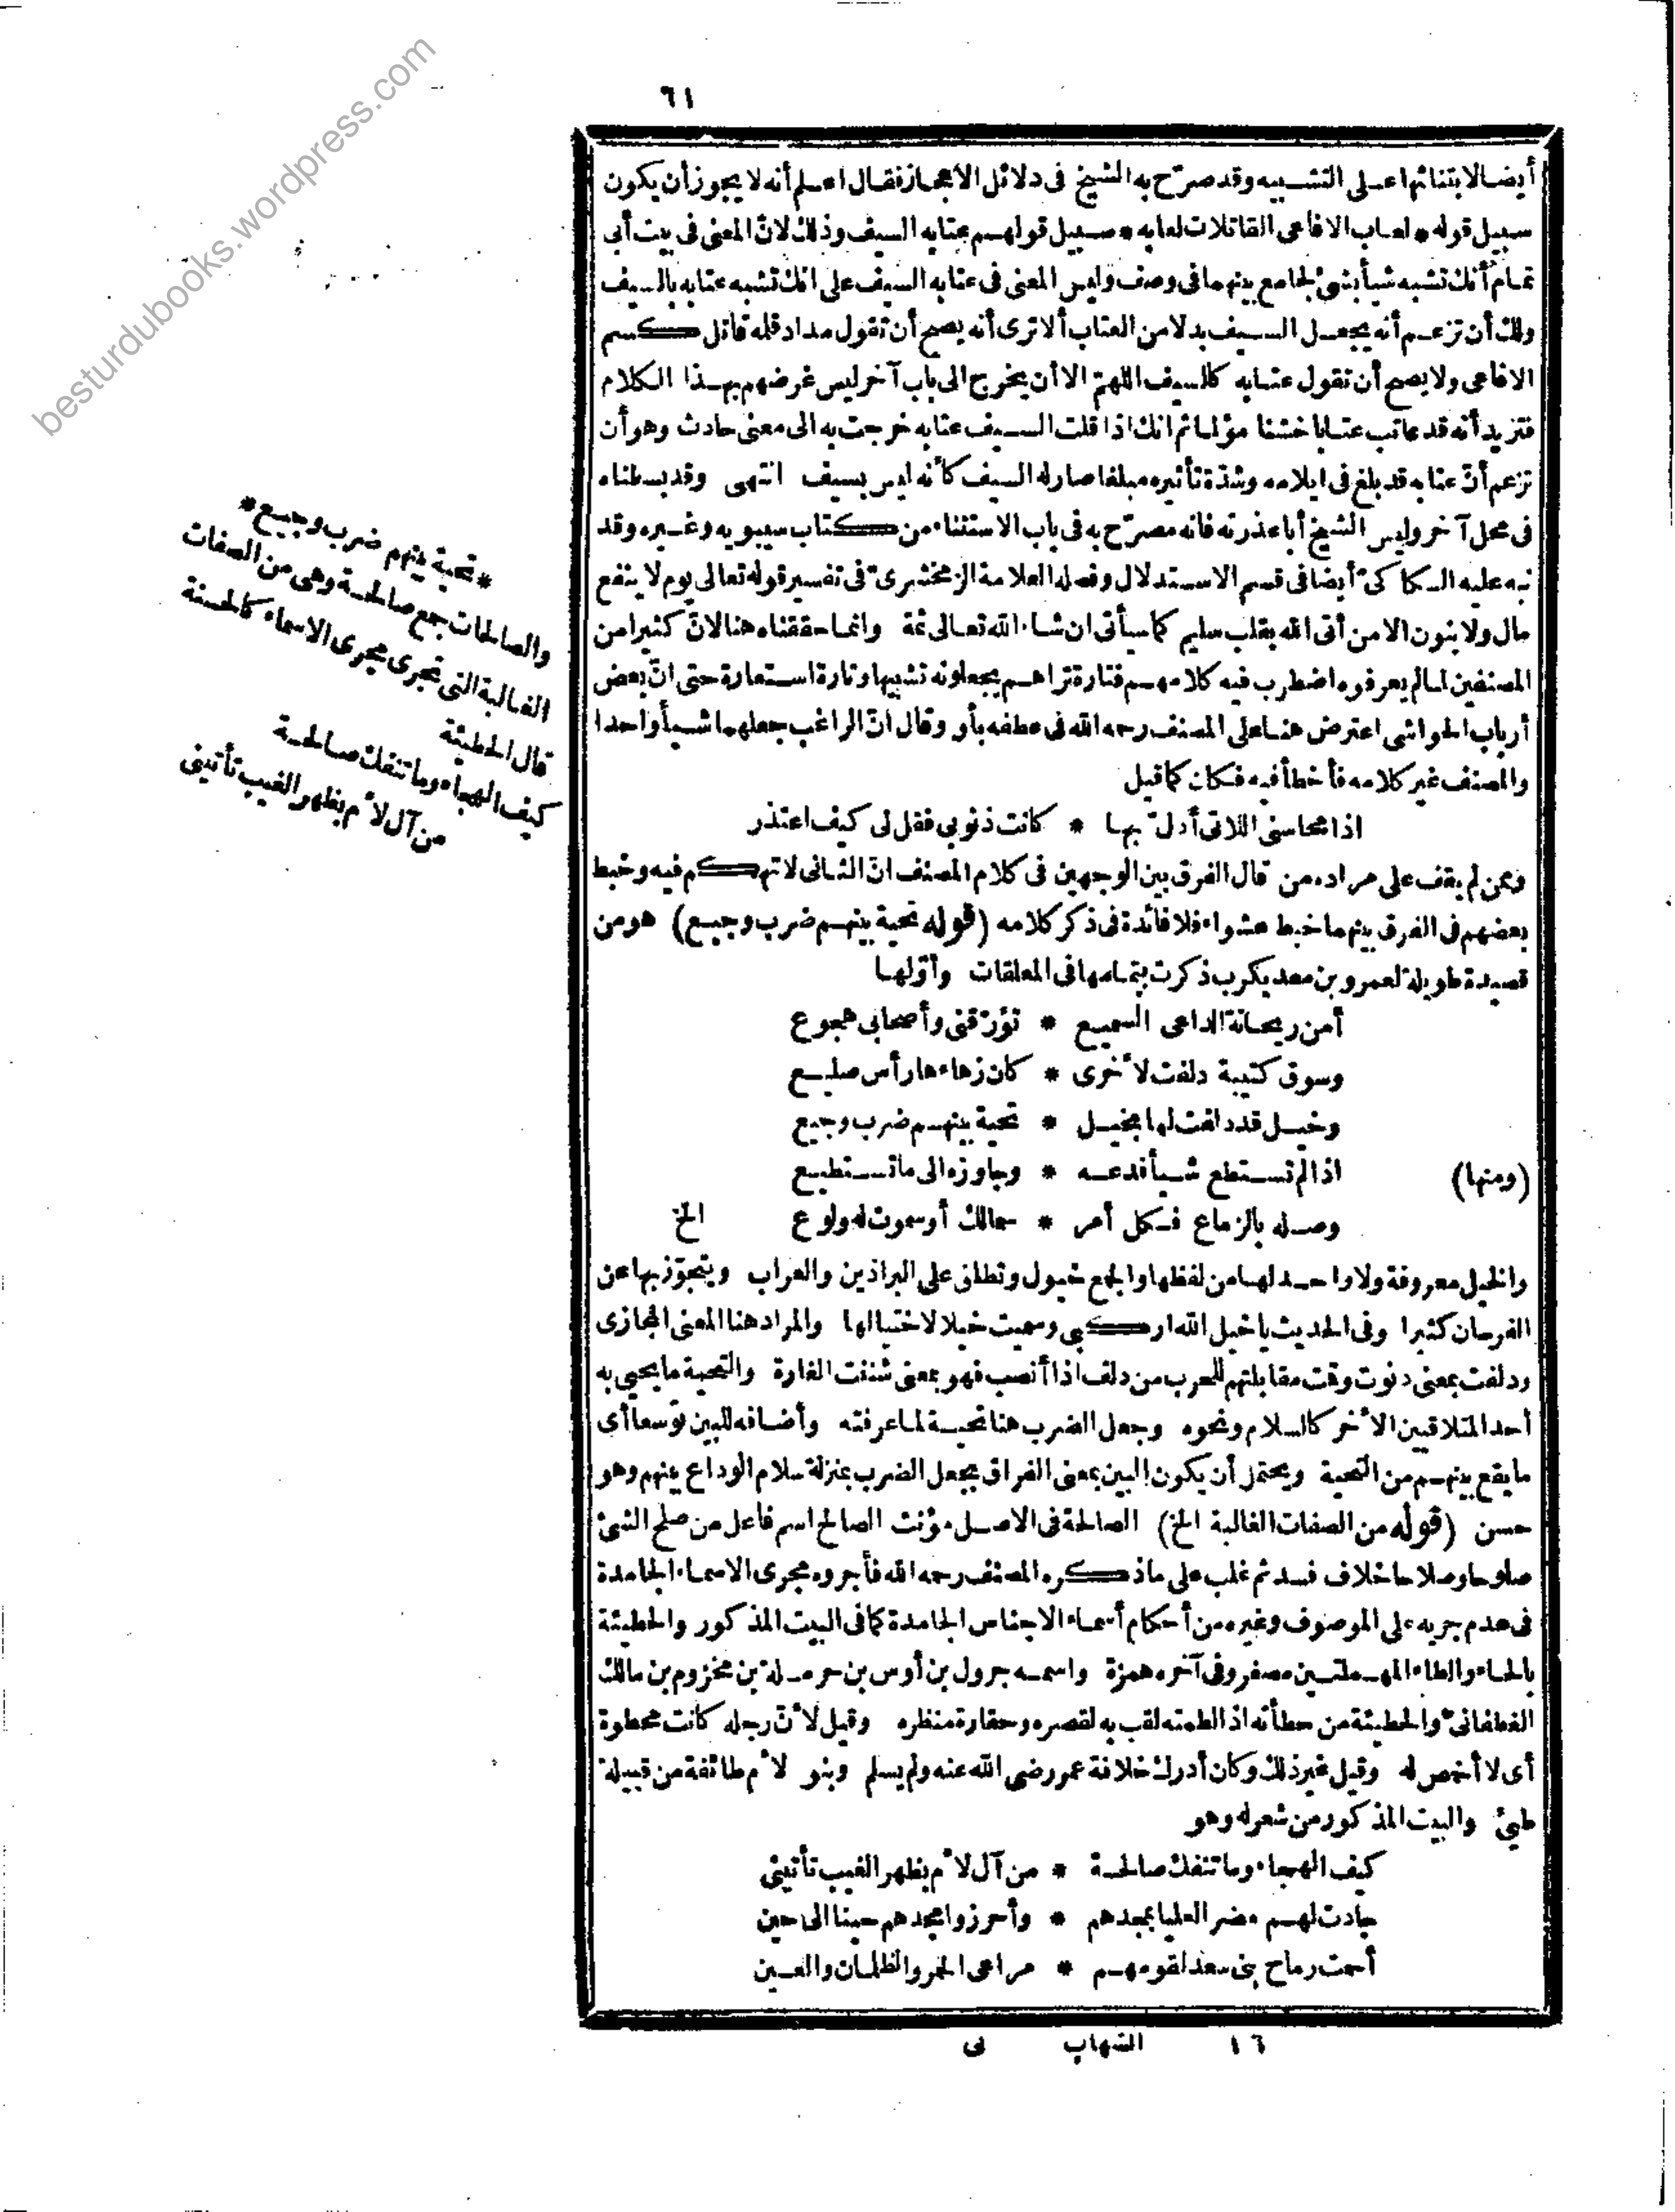 ٦١
أيضا لابتنائها على التشبيه وقد صرّح به الشيخ فى دلائل الاعجاز فقال اعلم أنه لا يجوز أن يكون
سبيل قوله * لعاب الافاعى القاتلات لعابه * سبيل قولهم عتابه السيف وذلك لانّ المعنى فى بيت أبى
تمام أنك تشبه شيأ بشئ لجامع بينهما فى وصف وليس المعنى فى عتابه السيف على انك تشبه عتابه بالسيف
ولك أن تزعم أنه يجعل السيف بدلا من العتاب ألا ترى أنه يصح أن تقول مداد قلمه قاتل كسم
الافاعى ولا يصح أن تقول عتابه كالسيف اللهمّ الا أن يخرج الى باب آخر ليس غرضهم بهذا الكلام
فتزيد أنه قد عاتب عتابا خشنا مؤلما ثم انك اذا قلت السيف عتابه خرجت به الى معنى حادث وهو أن
تزعم أنّ عتابه قد بلغ فى ايلامه وشدّة تأثيره مبلغا صار له السيف كأنه ليس بسيف انتهى وقد بسطناه
فى محل آخر وليس الشيخ أبا عذرته فانه مصرّح به فى باب الاستثناء من كتاب سيبويه وغيره وقد
نبه عليه السكاكىّ أيضا فى قسم الاستدلال وفصله العلامة الزمخشرىّ فى تفسير قوله تعالى يوم لا ينفع
مال ولا بنون الا من أتى الله بقلب سليم كما سيأتى ان شاء الله تعالى ثمة وانما حققناه هنا لانّ كثيرا من
المصنفين لما لم يعرفوه اضطرب فيه كلامهم فتارة تراهم يجعلونه تشبيها وتارة استعارة حتى انّ بعض
أرباب الحواشى اعترض هنا على المصنف رحمه الله فى عطفه بأو وقال انّ الراغب جعلهما شيأ واحدا
والمصنف غير كلامه فأخطأ فيه فكان كما قيل
اذا محاسنى اللاتى أدلّ بها * كانت ذنوبى فقل لى كيف اعتذر
وممن لم يقف على مراده من قال الفرق بين الوجهين فى كلام المصنف انّ الثانى لا تهكم فيه وخبط
بعضهم فى الفرق بينهما خبط عشواء فلا فائدة فى ذكر كلامه (قوله تحية بينهم ضرب وجيع) هو من
قصيدة طويلة لعمرو بن معد يكرب ذكرت بتمامها فى المعلقات وأوّلها
أمن ريحانة الداعى السميع * تؤرّقنى وأصحابى هجوع
وسوق كتيبة دلفت لأخرى * كان زهاءها رأس صليع
وخيل قد دلفت لها بخيل * تحية بينهم ضرب وجيع
(ومنها) اذا لم تستطع شيأ فدعه * وجاوزه الى ما تستطيع
وصله بالزماع فكل أمر * سمالك أو سموت له ولوع الخ
والخيل معروفة ولا واحد لها من لفظها والجمع خيول وتطلق على البراذين والعراب ويتجوّز بها عن
الفرسان كثيرا وفى الحديث يا خيل الله اركبى وسميت خيلا لاختيالها والمراد هنا المعنى المجازى
ودلفت بمعنى دنوت وقت مقابلتهم للحرب من دلف اذا أنصب فهو بمعنى شننت الغارة والتحية ما يحيى به
أحد المتلاقيين الأخر كالسلام ونحوه وجعل الضرب هنا تحية لما عرفته وأضافه للبين توسعا أى
ما يقع بينهم من التحية ويحتمل أن يكون البين بمعنى الفراق بجعل الضرب بمنزلة سلام الوداع بينهم وهو
حسن (قوله من الصفات الغالبة الخ) الصالحة فى الاصل مؤنث الصالح اسم فاعل من صلح الشئ
صلوحا وصلاحا خلاف فسد ثم غلب على ما ذكره المصنف رحمه الله فأجروه مجرى الاسماء الجامدة
فى عدم جريه على الموصوف وغيره من أحكام أسماء الاجناس الجامدة كما فى البيت المذكور والحطيئة
بالحاء والطاء المهملتين مصغر وفى آخره همزة واسمه جرول بن أوس بن حرملة بن مخزوم بن مالك
الغطفانىّ والحطيئة من حطأته اذا لطمته لقب به لقصره وحقارة منظره وقيل لأنّ رجله كانت محطوة
أى لا أخمص له وقيل غير ذلك وكان أدرك خلافة عمر رضى الله عنه ولم يسلم وبنو لأم طائفة من قبيلة
طيئ والبيت المذكور من شعر له وهو
كيف الهجاء وما تنفك صالحة * من آل لأم بظهر الغيب تأتينى
جادت لهم مضر العليا بمجدهم * وأحرزوا مجدهم حينا الى حين
أحمت رماح بنى سعد لقومهم * مراعى الحمر والظلمان والعين
١٦ الشهاب نى
* تحية بينهم ضرب وجيع *
والصالحات جمع صالحة وهى من الصفات
الغالبة التى تجرى مجرى الاسماء كالحسنة
قال الحطيئة
كيف الهجاء وما تنفك صالحة
من آل لأم بظهر الغيب تأتينى
besturdubooks.wordpress.com